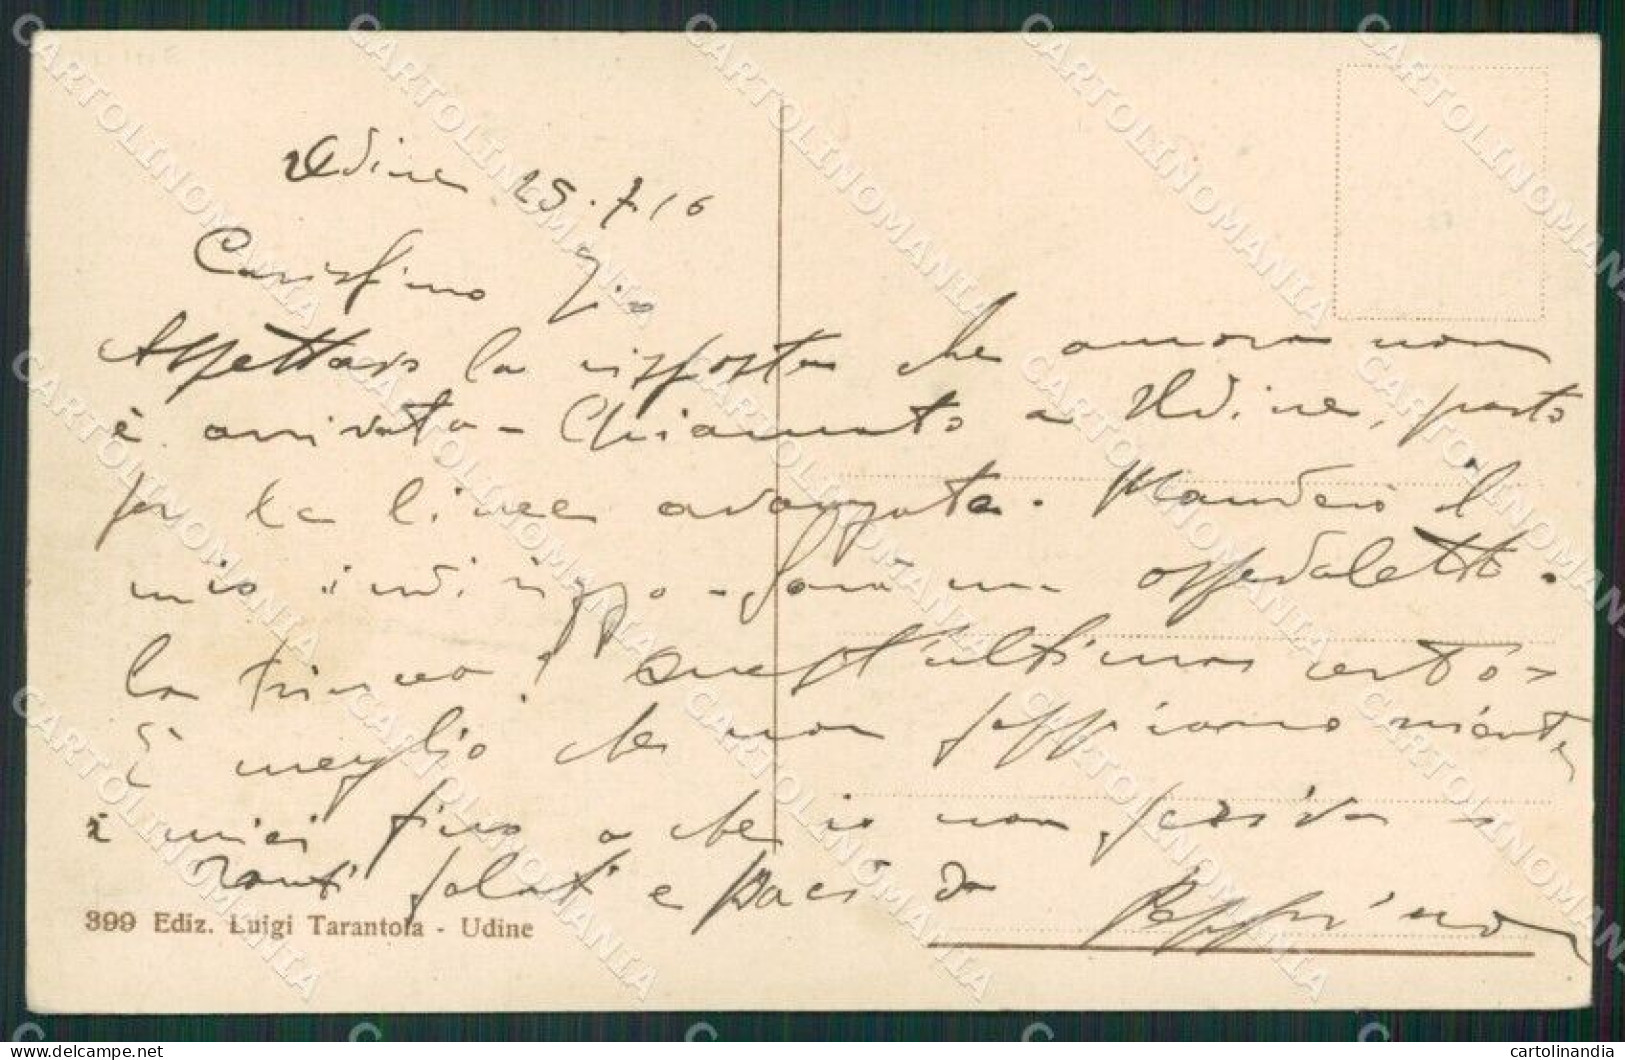 Udine 25.7.16
Carissimo Zio
Aspettavo la risposta che ancora non
è arrivata - Chiamato a Udine, parto
per la linea avanzata. Manderò il
mio indirizzo - Sarà un ospedaletto.
la trincea? Quest'ultima certo -
È meglio che non sappiano niente
i miei fino a che io non scriva -
Tanti saluti e baci da Peppino
399 Ediz. Luigi Tarantola - Udine
CARTOLINOMANIA
cartolinandia